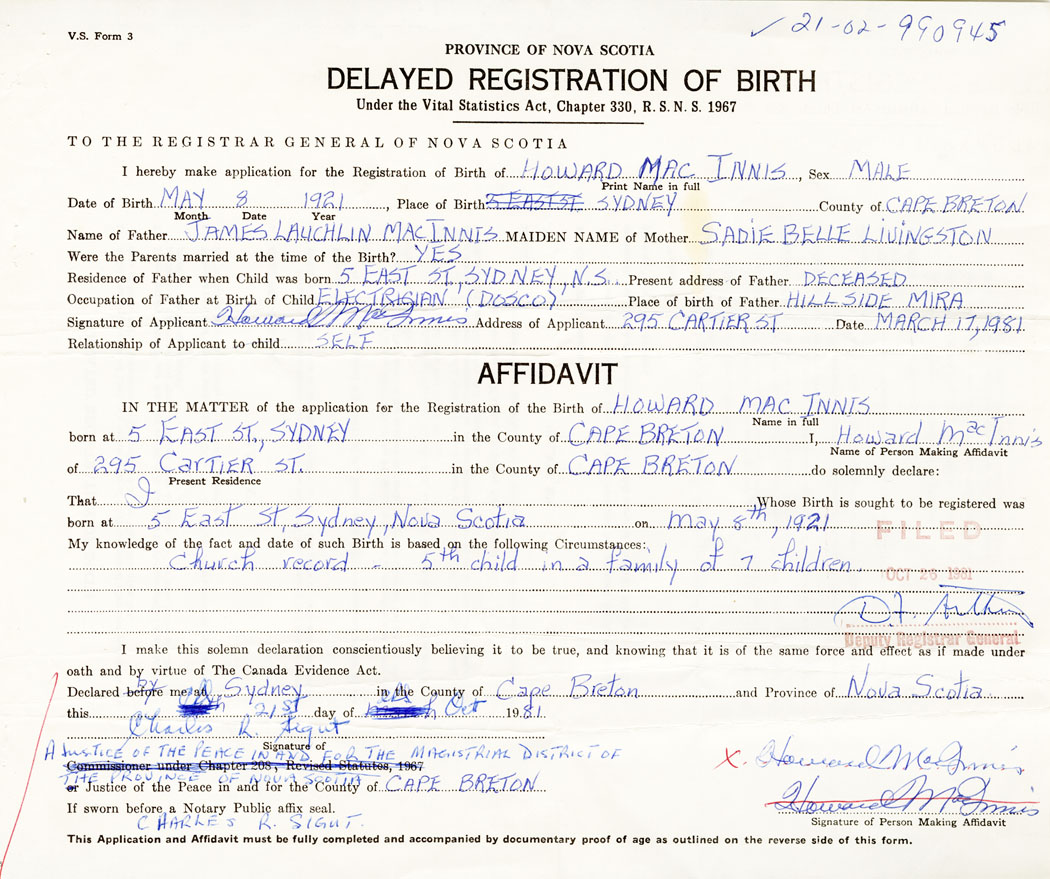 ✓ 21-02-990945
V.S. Form 3
PROVINCE OF NOVA SCOTIA
DELAYED REGISTRATION OF BIRTH
Under the Vital Statistics Act, Chapter 330, R.S.N.S. 1967
TO THE REGISTRAR GENERAL OF NOVA SCOTIA
I hereby make application for the Registration of Birth of HOWARD MAC INNIS, Sex MALE
Print Name in full
Date of Birth MAY 8 1921, Place of Birth 5 EAST ST SYDNEY County of CAPE BRETON
Month Date Year
Name of Father JAMES LAUCHLIN MACINNIS MAIDEN NAME of Mother SADIE BELLE LIVINGSTON
Were the Parents married at the time of the Birth? YES
Residence of Father when Child was born 5 EAST ST, SYDNEY, N.S. Present address of Father DECEASED
Occupation of Father at Birth of Child ELECTRICIAN (DOSCO) Place of birth of Father HILLSIDE MIRA
Signature of Applicant Howard MacInnis Address of Applicant 295 CARTIER ST Date MARCH 17, 1981
Relationship of Applicant to child SELF
AFFIDAVIT
IN THE MATTER of the application for the Registration of the Birth of HOWARD MAC INNIS
Name in full
born at 5 EAST ST., SYDNEY in the County of CAPE BRETON I, Howard MacInnis
Name of Person Making Affidavit
of 295 CARTIER ST. in the County of CAPE BRETON do solemnly declare:
Present Residence
That I Whose Birth is sought to be registered was
born at 5 East St, Sydney, Nova Scotia on May 8th, 1921
FILED
My knowledge of the fact and date of such Birth is based on the following Circumstances:
Church record - 5th child in a family of 7 children.
OCT 26 1981
Deputy Registrar General
I make this solemn declaration conscientiously believing it to be true, and knowing that it is of the same force and effect as if made under
oath and by virtue of The Canada Evidence Act.
Declared before by me at Sydney in the County of Cape Breton and Province of Nova Scotia
this 21st day of Oct 1981
Charles R. Sigut
Signature of
A JUSTICE OF THE PEACE IN AND FOR THE MAGISTRIAL DISTRICT OF
Commissioner under Chapter 208, Revised Statutes, 1967
THE PROVINCE OF NOVA SCOTIA
or Justice of the Peace in and for the County of CAPE BRETON
X. Howard MacInnis
Howard MacInnis
If sworn before a Notary Public affix seal.
CHARLES R. SIGUT.
Signature of Person Making Affidavit
This Application and Affidavit must be fully completed and accompanied by documentary proof of age as outlined on the reverse side of this form.